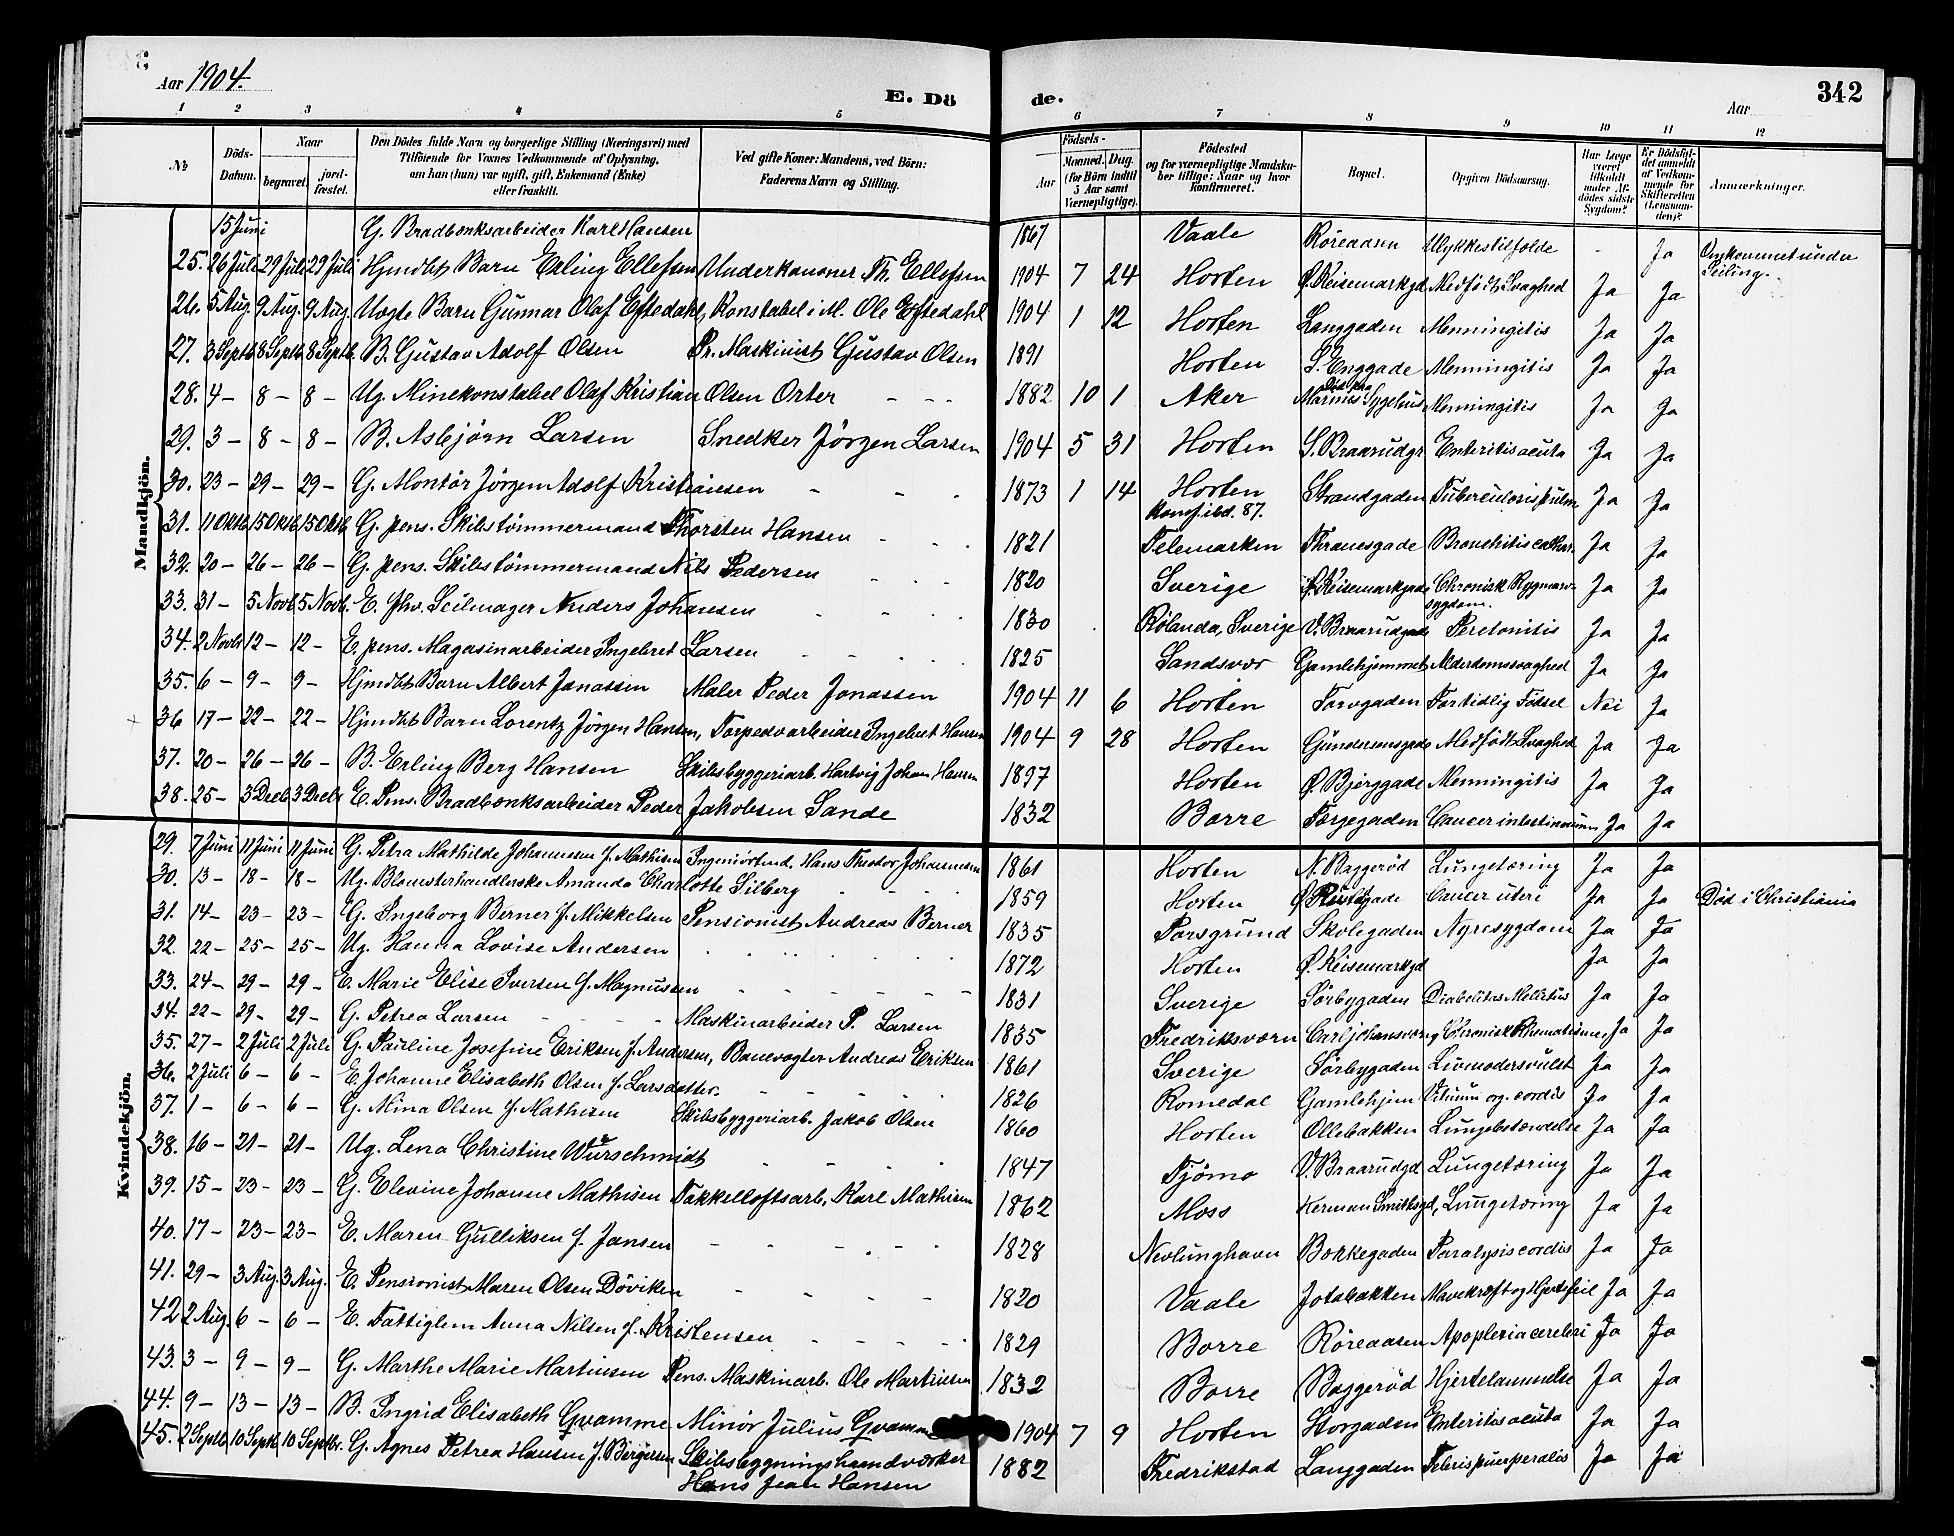 Aar 1904.
E. Dö
de.
Aar
342
1 2 3 4 5 6 7 8 9 10 11 12
No
Döds-Datum.
Naar
begravet.
jordfæstet.
Den Dödes fulde Navn og borgerlige Stilling (Næringsvei) med
Tilföiende for Voxnes Vedkommende af Oplysning,
om han (hun) var ugift, gift, Enkemand (Enke)
eller fraskilt.
Ved gifte Koner: Mandens, ved Börn:
Faderens Navn og Stilling.
Födsels-
Aar
Maaned. Dag.
(for Börn indtil
5 Aar samt
Værnepligtige).
Födested
og for værnepligtige Mandskaber tillige: Naar og hvor
Konfirmeret.
Bopæl.
Opgiven Dödsaarsag.
Har Læge været tilkaldt under Afdödes sidste Sygdom?
Er Dödsfaldet anmeldt af Vedkommende for Skifteretten (Lensmanden)?
Anmærkninger.
Mandkjön.
15 Juni G. Bradbænksarbeider Karl Hansen 1867 Vaale Röreaasen Ulykkestilfælde - Ja Omkommet under Seiling.
25. 26 Juli 29 Juli 29 Juli Hjmdbt Barn Erling Ellefsen Underkanoner Th. Ellefsen 1904 7 24 Horten Ø. Keisemarkgd Medfødt Svaghed Ja Ja
26. 5 Aug. 9 Aug. 9 Aug. Uægte Barn Gunnar Olaf Eftedahl, Konstabel i M. Ole Eftedahl 1904 1 12 Horten Langgaden Menningitis Ja Ja
27. 3 Septb. 8 Septb. 8 Septb. B. Gustav Adolf Olsen Pr. Maskinist Gustav Olsen 1891 Horten S. Enggade Menningitis Ja Ja
28. 4 - 8 - 8 - Ug. Minekonstabel Olaf Kristian Olsen Orter 1882 10 1 Aker Marinens Sygehus Menningitis Ja Ja
29. 3 - 8 - 8 - B. Asbjørn Larsen Snedker Jörgen Larsen 1904 5 31 Horten S. Braarudgt Enteritis acuta Ja Ja
30. 23 - 29 - 29 - G. Montør Jörgen Adolf Kristiansen 1873 1 14 Horten Konf. ibd. 87. Strandgaden Tuberculosis pulm Ja Ja
31. 11 Oktb 15 Oktb 15 Oktb G. pens. Skibstømmermand Thorsten Hansen 1821 Telemarken Thranesgade Bronchitis cathar. Ja Ja
32. 20 - 26 - 26 - G. pens. Skibstømmermand Nils Pedersen 1820 Sverige Ø. Keisemarkgade Chronisk Rygmarvsygdom. Ja Ja
33. 31 - 5 Novb 5 Novb. E. fhv. Seilmager Anders Johansen 1830 Rölanda, Sverige V. Braarudgade Peretonitis Ja Ja
34. 2 Novb 12 - 12 - E. pens. Magasinarbeider Ingebret Larsen 1825 Sandsvær Gamlehjemmet Alderdomssvaghed Ja Ja
35. 6 - 9 - 9 - Hjmdbt Barn Albert Jonassen Maler Peder Jonassen 1904 11 6 Horten Torvgaden For tidlig Fødsel Nei Ja
36 17 - 22 - 22 - Hjmdbt Barn Lorentz Jörgen Hansen, Torpedoarbeider Ingebret Hansen 1904 9 28 Horten Medfødt Svaghed Ja Ja
37. 20 - 26 - 26 - B. Erling Berg Hansen Skibsbyggeriarb. Hartvig Johan Hansen 1897 Horten Ø. Bjerggade Menningitis Ja Ja
38. 25 - 3 Decb 3 Decb E. Pens. Bradbænksarbeider Peder Jakobsen Sande 1832 Borre Torgegaden Cancer intestinorum Ja Ja
Kvindekjön.
29. 7 Juni 11 Juni 11 Juni G. Petra Mathilde Johannesen f. Mathisen Ingeniörtnd. Hans Theodor Johannesen 1861 Horten N. Baggerød Lungetæring Ja Ja
30. 13 - 18 - 18 - Ug. Blomsterhandlerske Amanda Charlotte Silberg 1859 Horten Cancer uteri Ja Ja Død i Christiania
31. 14 - 23 - 23 - G. Ingeborg Berner f. Mikkelsen Pensionist Andreas Berner 1835 Porsgrund Skolegaden Nyresygdom Ja Ja
32. 22 - 25 - 25 - Ug. Hanna Lovise Andersen 1872 Horten Ø. Keisemarkgd Ja Ja
33. 24 - 29 - 29 - E. Marie Elise Iversen f. Magnussen 1831 Sverige Sörbygaden Diabelitas Mellitus Ja Ja
34. 22 - 29 - 29 - G. Petrea Larsen Maskinarbeider P. Larsen 1835 Fredriksværn Carljohansværn Chronisk Rheumatisme, Ja Ja
35. 27 - 2 Juli 2 Juli G. Pauline Josefine Eriksen f. Andersen, Banevogter Andreas Eriksen 1861 Sverige Sörbygaden Livmodersvulst Ja Ja
36. 2 Juli 6 - 6 - E. Johanne Elisabeth Olsen f. Larsdatter. 1826 Romedal Gamlehjem Vitium org. cordis Ja Ja
37. 1 - 6 - 6 - G. Mina Olsen f. Mathisen Skibsbyggeriarb. Jakob Olsen 1860 Horten Ollebakken Lungebetændelse Ja Ja
38. 16 - 21 - 21 - Ug. Lena Christine Wurschmidt 1847 Tjømø V. Braarudgd Lungetæring Ja Ja
39. 15 - 23 - 23 - G. Elevine Johanne Mathisen Takkelloftsarb. Karl Mathisen 1862 Moss Herman Smithsgd, Lungetæring Ja Ja
40. 17 - 23 - 23 - E. Maren Gulliksen f. Jansen 1828 Nevlunghavn Bakkegaden Paralysis cordis Ja Ja
41. 29 - 3 Aug. 3 Aug. E. Pensionist Maren Olsen Døviken 1820 Vaale Jotabakken Mavekræft og Hjertefeil Ja Ja
42 2 Aug. 6 - 6 - E. Fattiglem Anna Nilsen f. Kristensen 1829 Borre Röreaasen Apoplexia cerebri Ja Ja
43. 3 - 9 - 9 - G. Marthe Marie Martinsen Pens. Maskinarb. Ole Martinsen 1832 Borre Baggerød Hjertelammelse Ja Ja
44. 9 - 13 - 13 - B. Ingrid Elisabeth Gvamme Minör Julius Gvamme 1904 7 9 Horten Storgaden Enteritis acuta Ja Ja
45. 2 Septb. 10 Septb. 10 Septbr. G. Agnes Petrea Hansen f. Børgersen Skibsbygningshaandværker Hans Jean Hansen 1882 Fredrikstad Langgaden Febris puerperalis Ja Ja